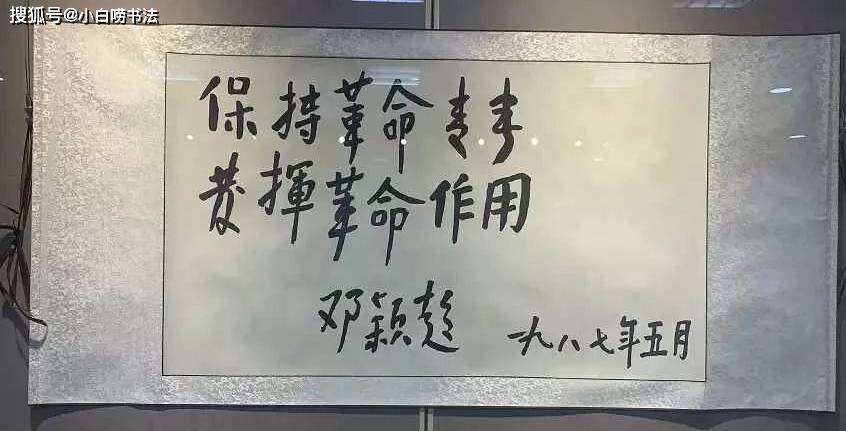 搜狐号@小白唠书法
保持革命青春
發揮革命作用
邓颖超
一九八七年五月